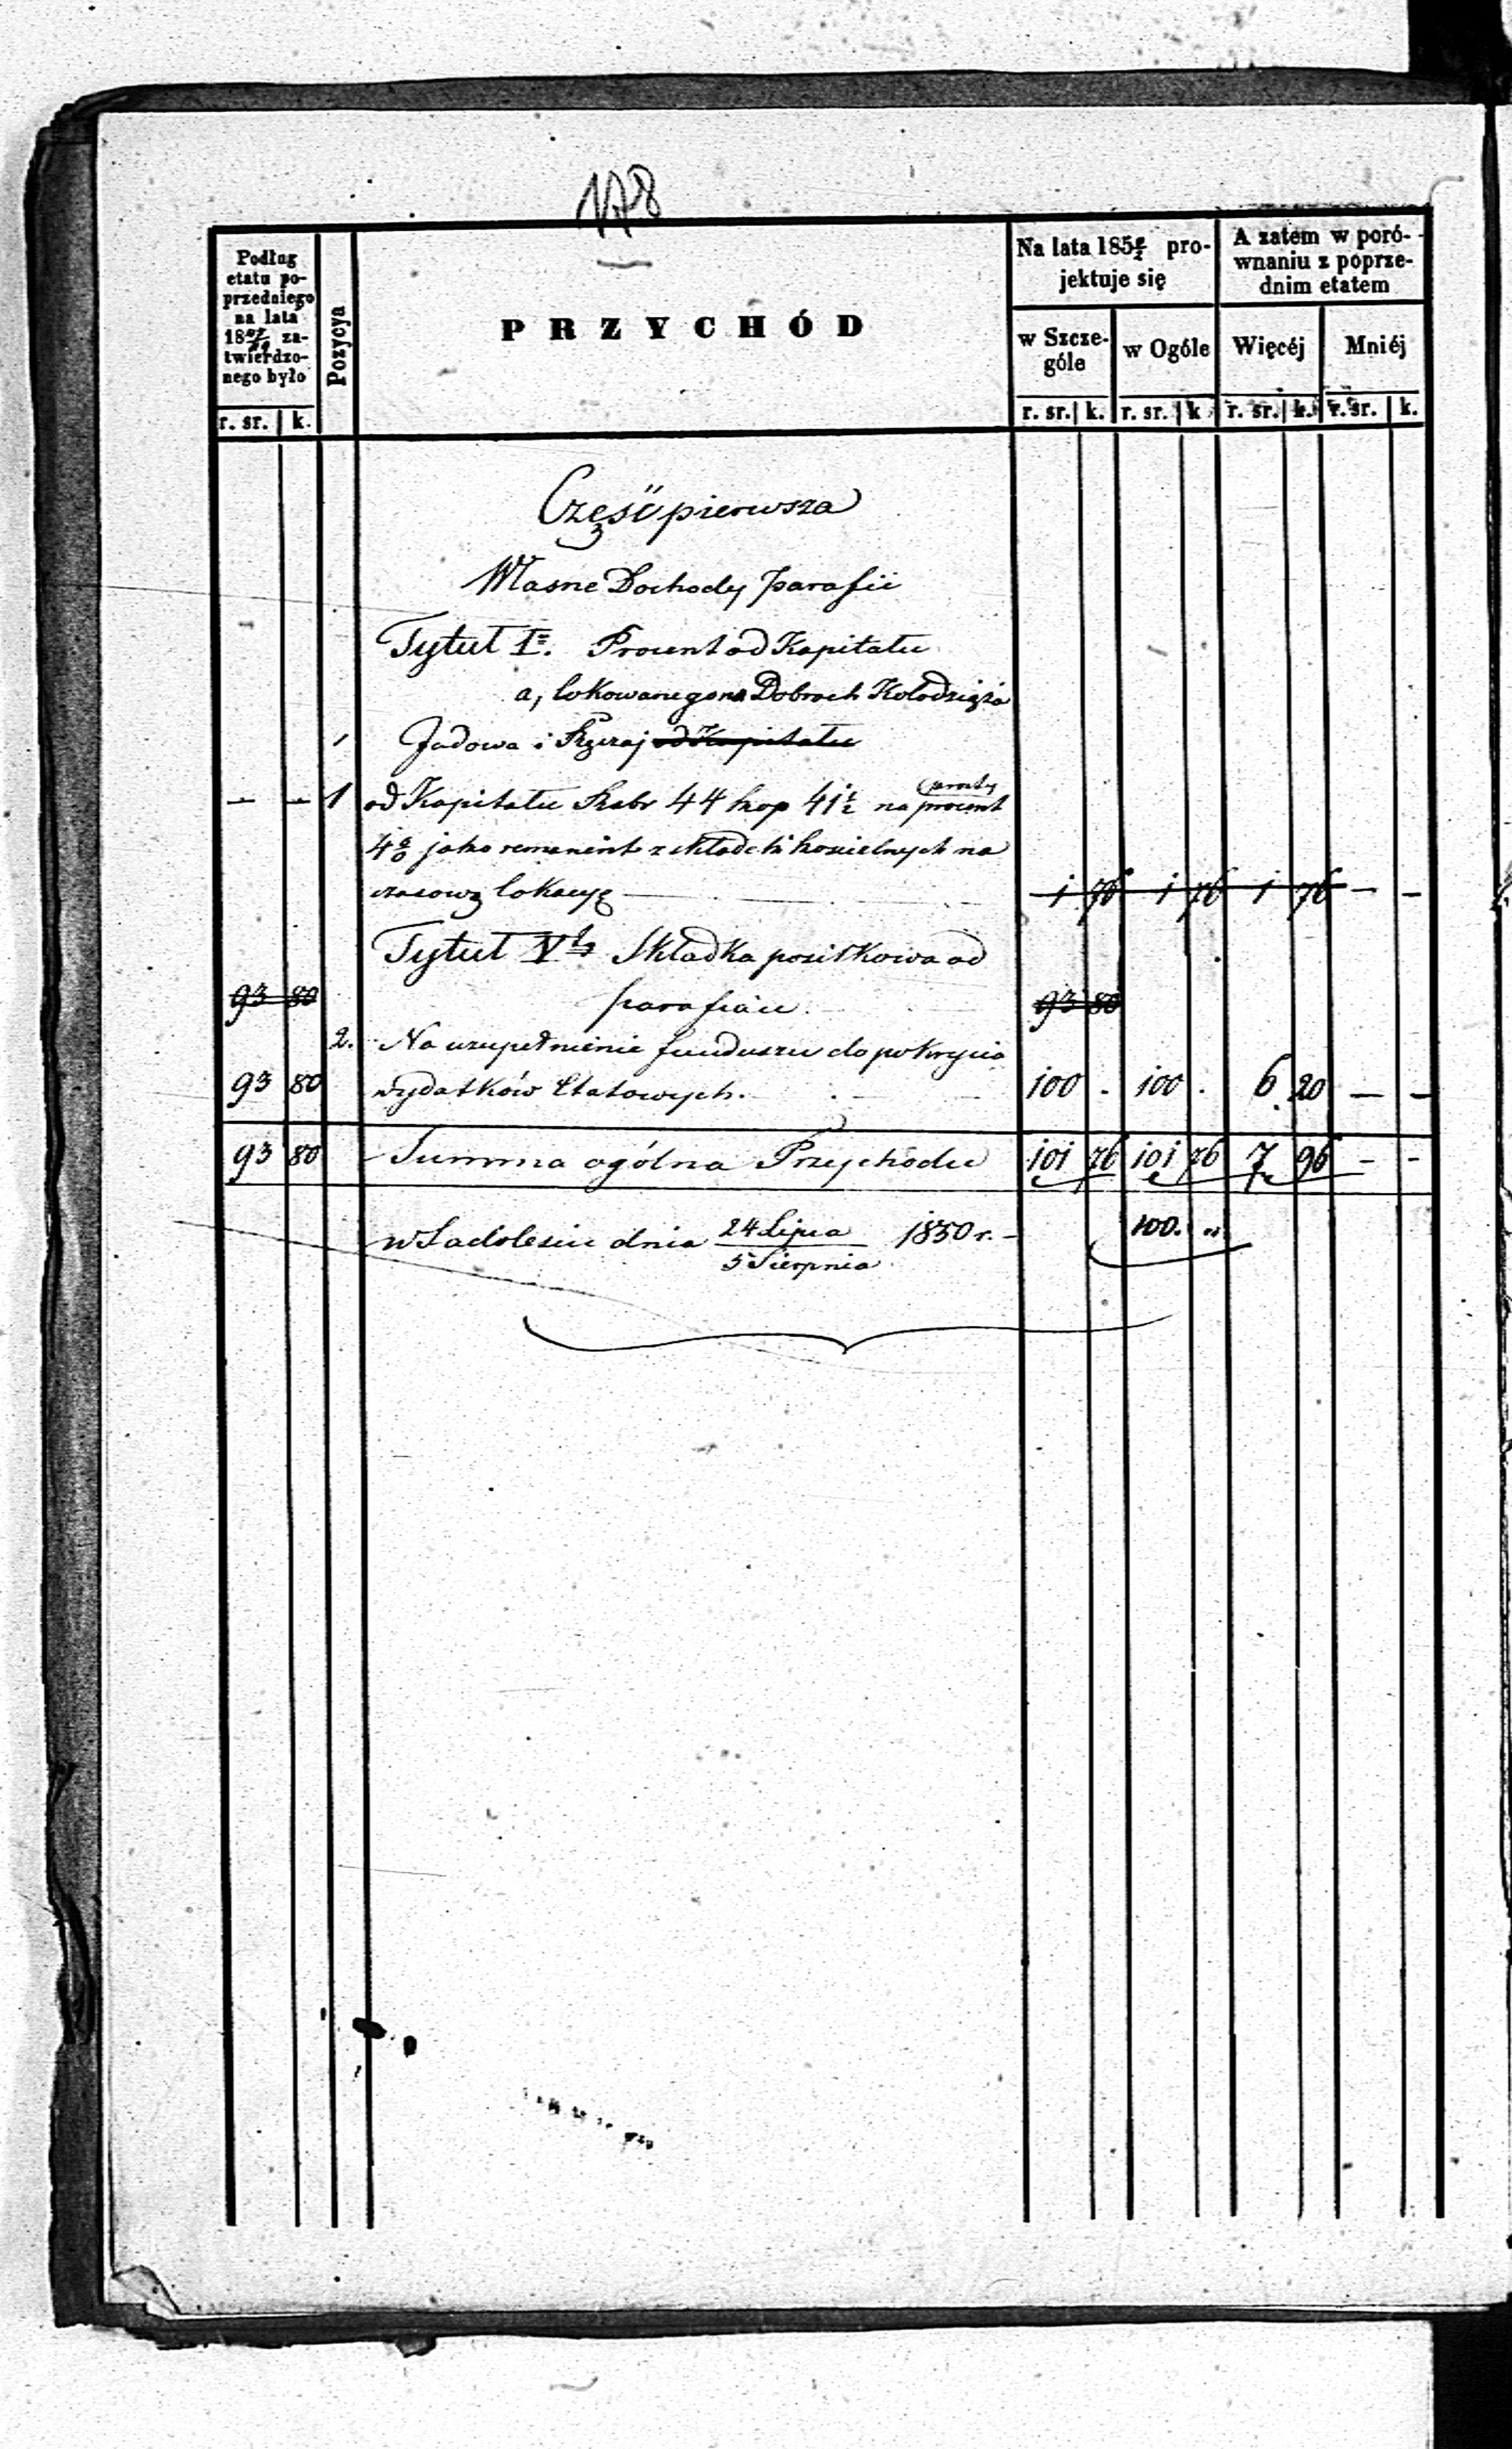 178
Podług etatu poprzedniego na lata 18 zatwierdzonego było
Pozycya
PRZYCHÓD
Na lata 185 projektuje się
A zatem w porównaniu z poprzednim etatem
w Szczególe
w Ogóle
Więcéj
Mniéj
r. sr. k. r. sr. k. r. sr. k. r. sr. k. r. sr. k.
Część pierwsza
Własne Dochody parafii
Tytuł I. Procent od Kapitału
a, lokowanego na Dobrach Kołodziąża
Jadowa i od Kapitału
— — 1 od Kapitału Rubr 44 kop 41½ na procent
4% jako remanent z składek kościelnych na
czasową lokacyę 1 76 1 76 1 76 — —
Tytuł V Składka posiłkowa od
93 80 parafian 93 80
2. Na uzupełnienie funduszu do pokrycia
93 80 wydatków Etatowych. 100 - 100 . 6 20 — —
93 80 Summa ogólna Przychodu 101 76 101 76 7 96 - -
w Sadolesiu dnia 24 Lipca / 5 Sierpnia 1850 r. - 100. "